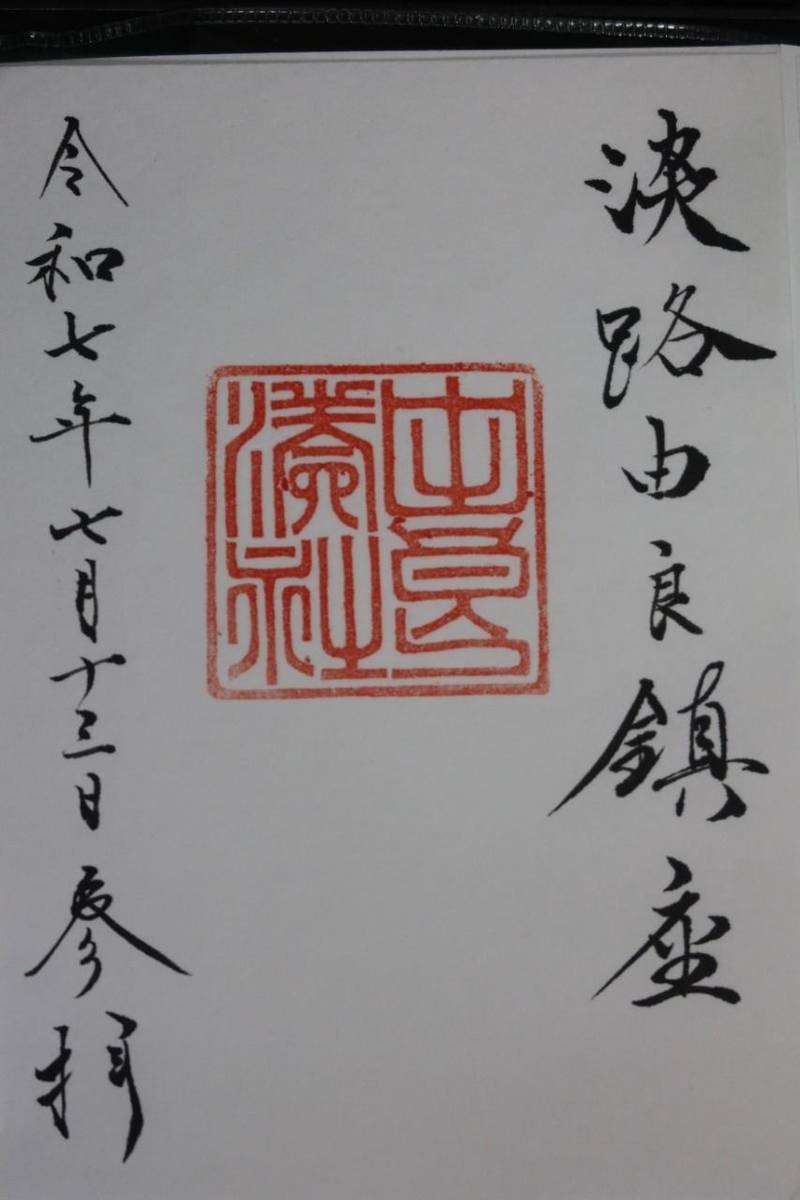 淡路由良鎮座
由良
湊社
令和七年七月十三日参拝